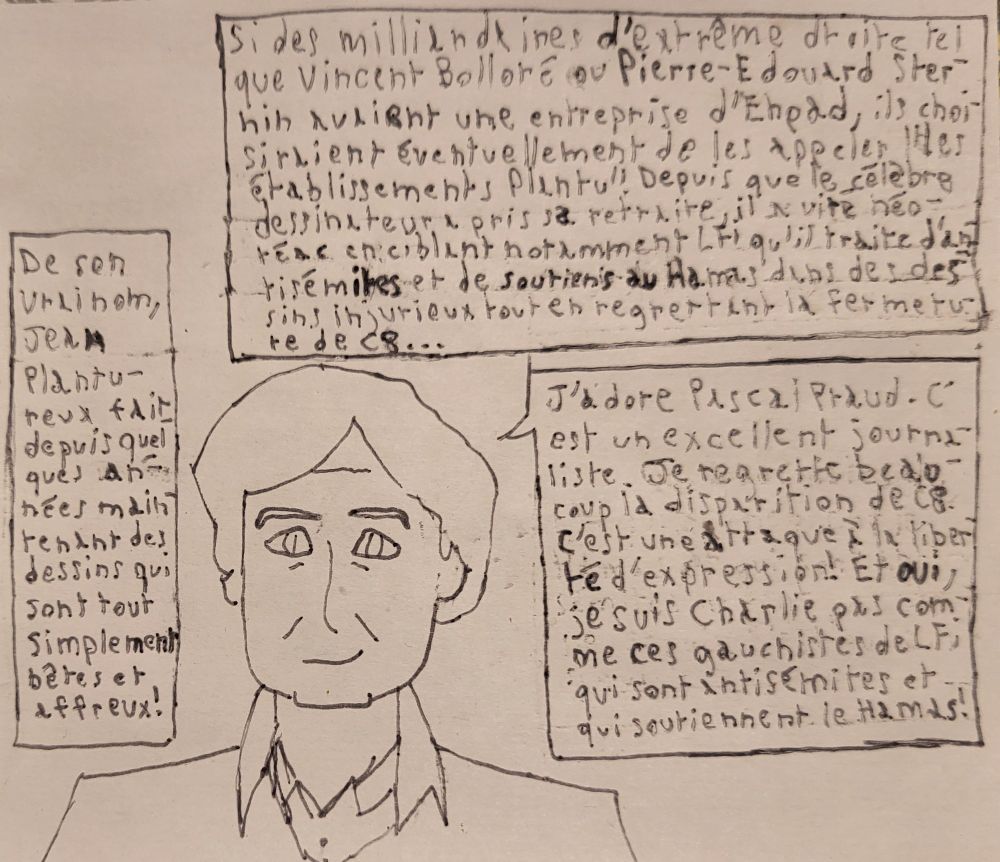 Si des milliardaires d'extrême droite tel
que Vincent Bolloré ou Pierre-Edouard Ster-
nin avaient une entreprise d'Ehpad, ils choi
siraient éventuellement de les appeler "les
établissements Plantu". Depuis que le célèbre
dessinateur a pris sa retraite, il a viré néo-
réac en ciblant notamment LFI qu'il traite d'an
tisémites et de soutiens au Hamas dans des des
sins injurieux tout en regrettant la fermetu-
re de C8...
De son
vrai nom,
Jean
Plantu-
reux fait
depuis quel
ques an-
nées main
tenant des
dessins qui
sont tout
simplement
bêtes et
affreux!
J'adore Pascal Praud. C'
est un excellent journa-
liste. Je regrette beau-
coup la disparition de C8.
C'est une attaque à la liber
té d'expression! Et oui,
je suis Charlie pas com-
me ces gauchistes de LFi
qui sont antisémites et
qui soutiennent le Hamas!